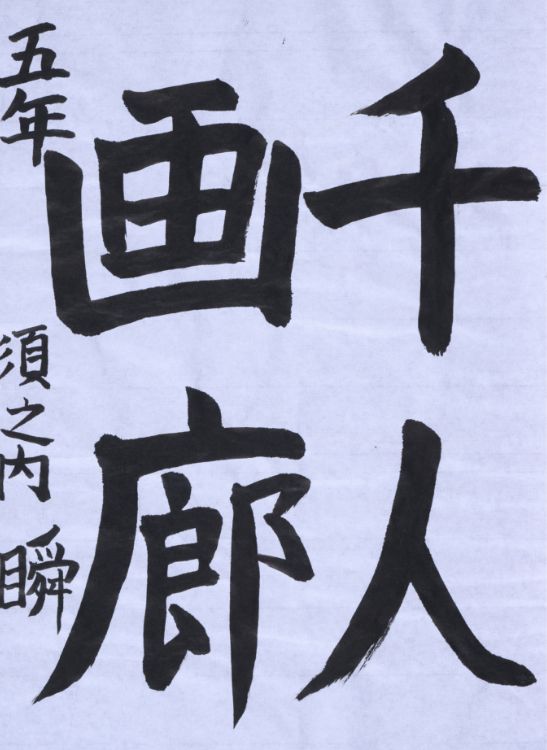 千人
画廊
五年 須之内 瞬